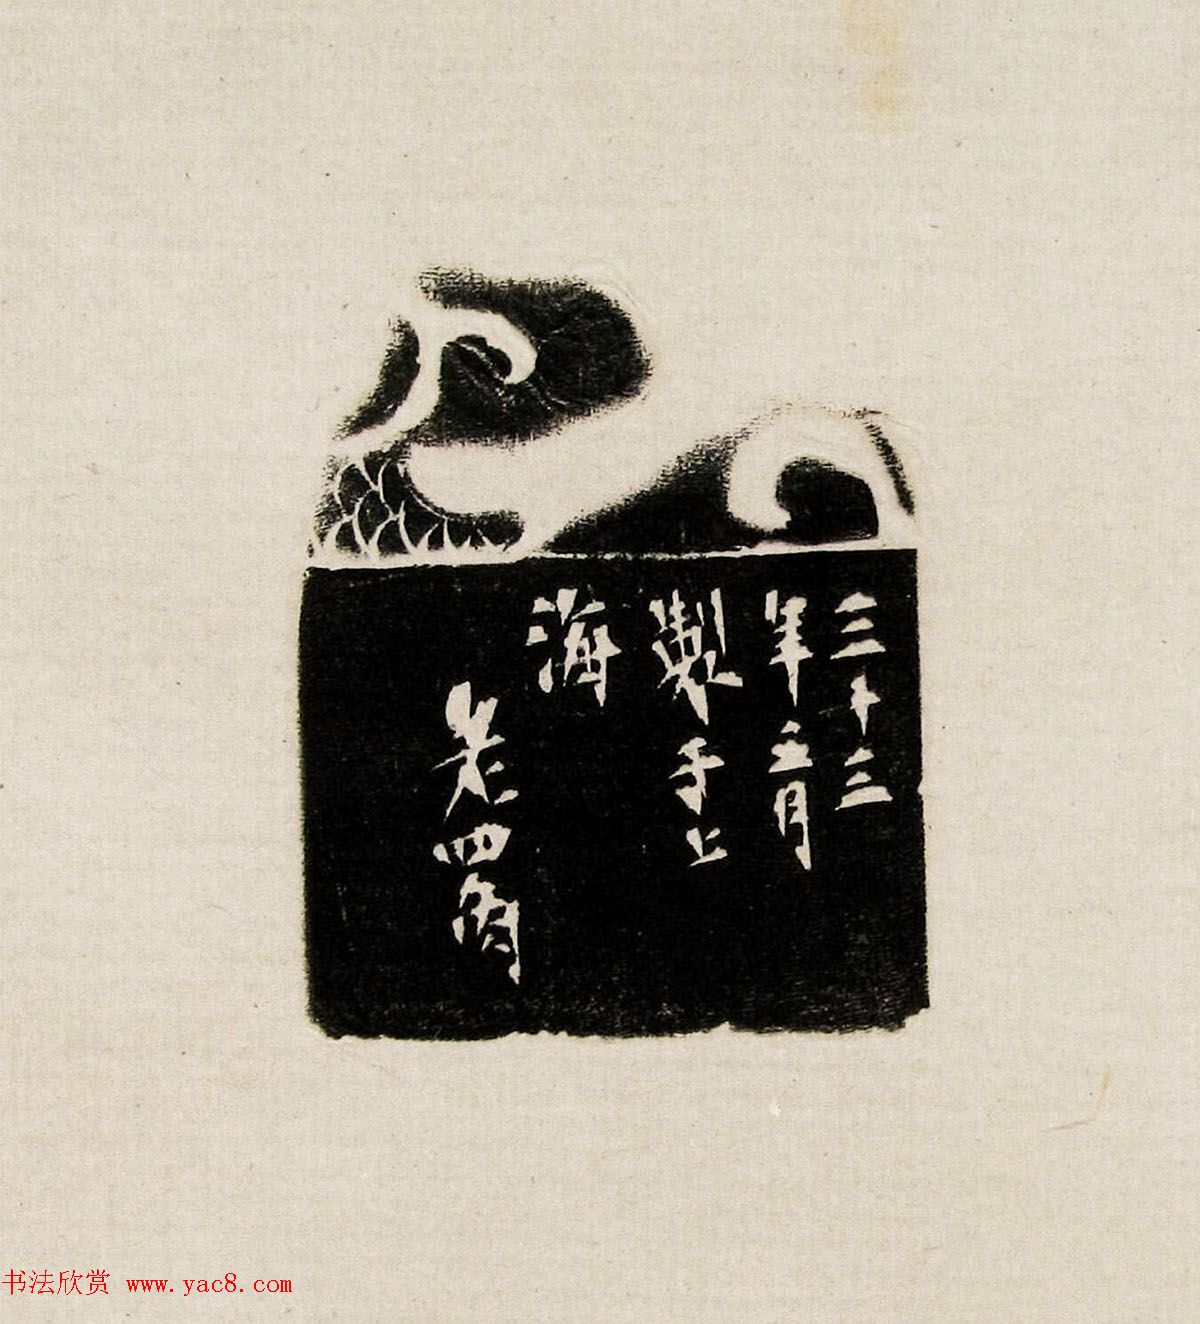 三十三
年五月
製于上
海
四
书法欣赏 www.yac8.com